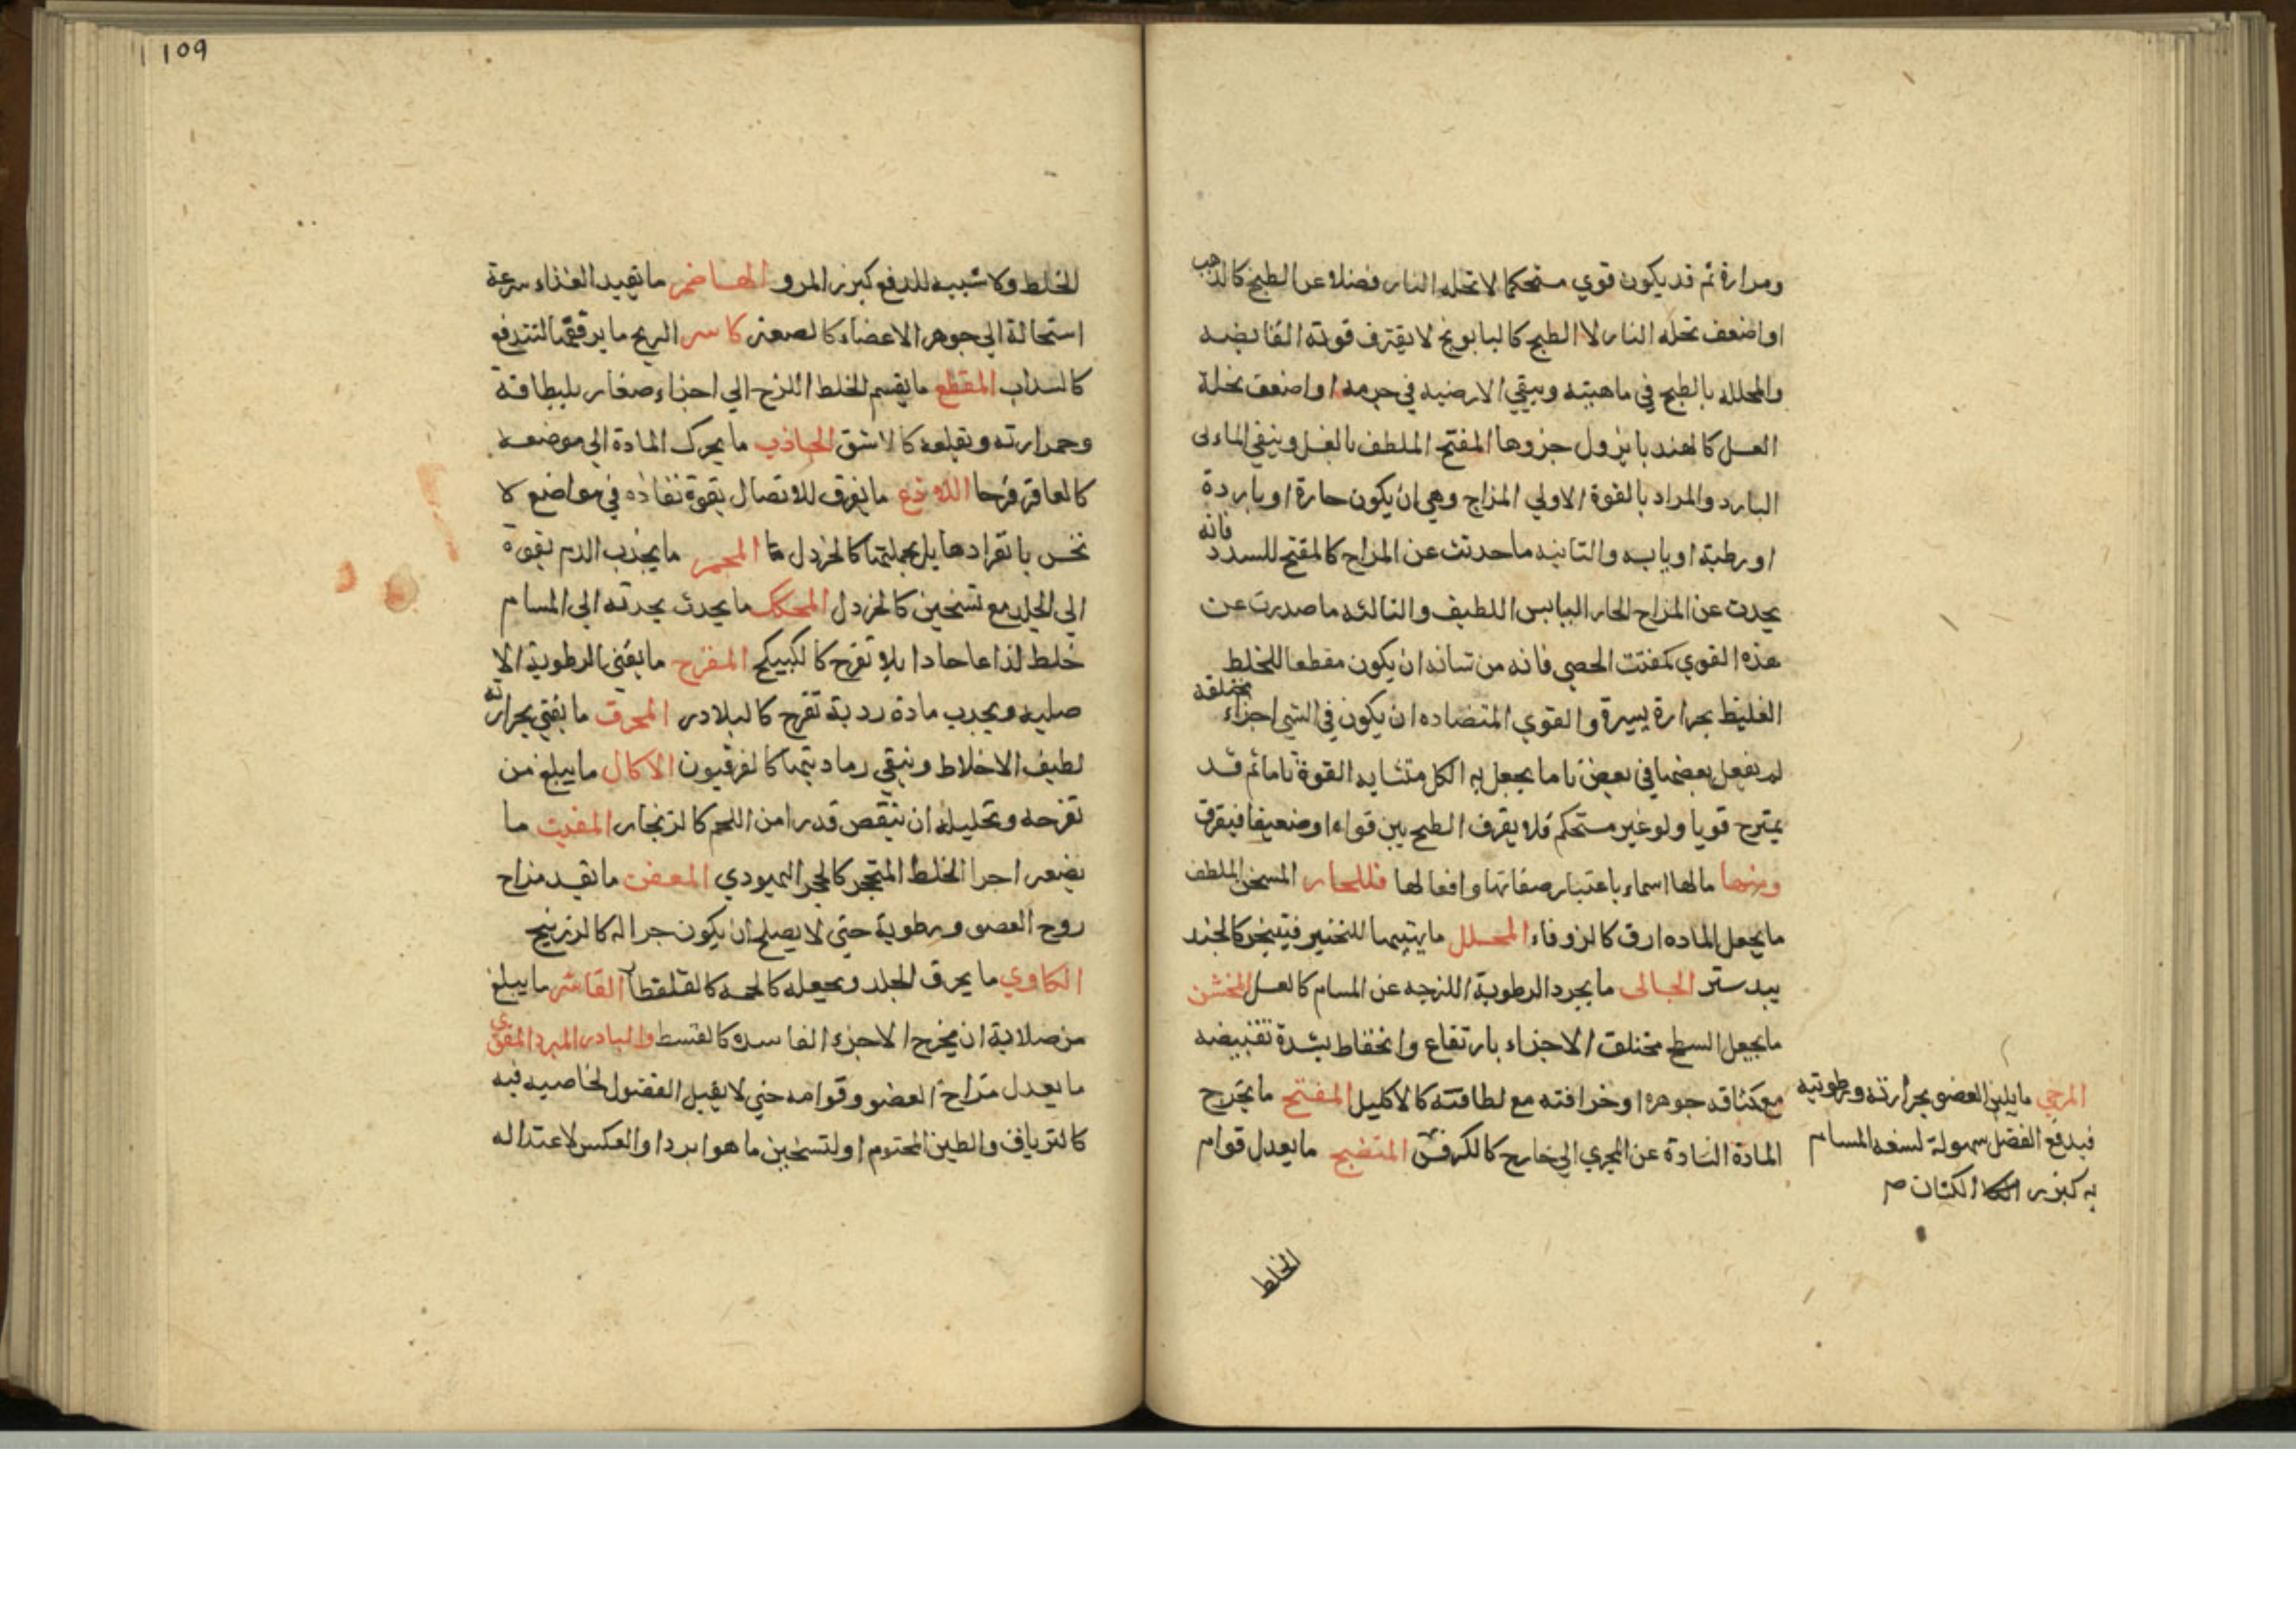 ومرارة ثم قد يكون قوي مستحكما لا تحله النار فضلا عن الطبخ كالذهب
او اضعف تحله النار لا الطبخ كالبابونج لا يفترق قوته القابضه
والمحلله بالطبخ في ماهيته ويبقي الارضيه في جرمه او اضعف بحلة
العسل كالهندبا يزول جزوها المفتح الملطف بالغسل ويبقي الماءى
البارد والمراد بالقوة الاولي المزاج وهي ان يكون حارة او باردة
او رطبة او يابسه والثانيه ما حدثت عن المزاج كالمفتح للسدد فانه
يحدث عن المزاج الحار اليابس اللطيف والثالثه ما صدرت عن
هذه القوي كمفتت الحصي فانه من شانه ان يكون مقطعا للخلط
الغليظ بحرارة يسيرة والقوي المتضاده ان يكون في الشي اجزاء مختلفة
لم يفعل بعضها في بعض تاما يجعل به الكل متشابه القوة تاما ثم قد
يمتزج قويا ولو غير مستحكم فلا يفرق الطبخ بين قواه او ضعيفا فيفرق
ومنها ما لها اسماء باعتبار صفاتها وافعالها فللحار المسخن الملطف
ما يجعل الماده ارق كالزوفاء المحلل ما يهييها للتخير فيتبخر كالجند
بيدستر الجالى ما يجرد الرطوبة اللزجه عن المسام كالعسل المخشن
ما يجعل السطح مختلف الاجزاء بارتفاع وانخفاط بشدة تقبيضه
مع كثافه جوهره او خرافته مع لطافته كالاكليل المفتح ما يخرج
المادة السادة عن المجري الي خارج كالكرفس المنضج ما يعدل قوام
المرخي ما يلين العضو بحرارته ورطوبتيه
فيدفع الفضل سهولة لسعه المسام
به كبزر الكتان صح
الخلط
109
الخلط وكا شبيه للدفع كبزر المرو الهاضم ما يفيد الغذاء سرعة
استحالة الي جوهر الاعضاء كالصعتر كاسر الريح ما يرققها لتندفع
كالسداب المقطع ما يقسم الخلط اللزج الي اجزاء صغار بلطافة
وحرارته وتقلعه كالاشق الجاذب ما يحرك المادة الي موضعه
كالعاقر قرحا اللاذع ما يفرق للاتصال بقوة نفاذه في مواضع لا
تحس بانفرادها بل بجملتها كالخردل المحمر ما يجذب الدم بقوة
الي الجلد مع تسخين كالخردل المحكك ما يحدث بحدته الي المسام
خلط لذاعا حادا بلا تقرح كالكبيكج المقرح ما يفني الرطوبة الا
صليه ويجذب مادة ردية تقرح كالبلادر المحرق ما يفني بحرارته
لطيف الاخلاط ويبقي رماديتها كالفرفيون الاكال ما يبلغ من
تقرحه وتحليله ان ينقص قدرا من اللحم كالزنجار المفتت ما
يصغر اجزا الخلط المتحجر كالحجر اليهودي المعفن ما يفسد مزاج
روح العضو ورطوبة حتي لا يصلح ان يكون جزا له كالزرنيخ
الكاوي ما يحرق الجلد ويجعله كالحمه كالقلقطار القاشر ما يبلغ
من صلابة ان يخرج الاجزاء الفاسده كالقسط والبادر المبرد المقوي
ما يعدل مزاج العضو وقوامه حتي لا يقبل الفضول لخاصيه فيه
كالترياق والطين المختوم او لتسخين ما هو ابرد او العكس لاعتداله